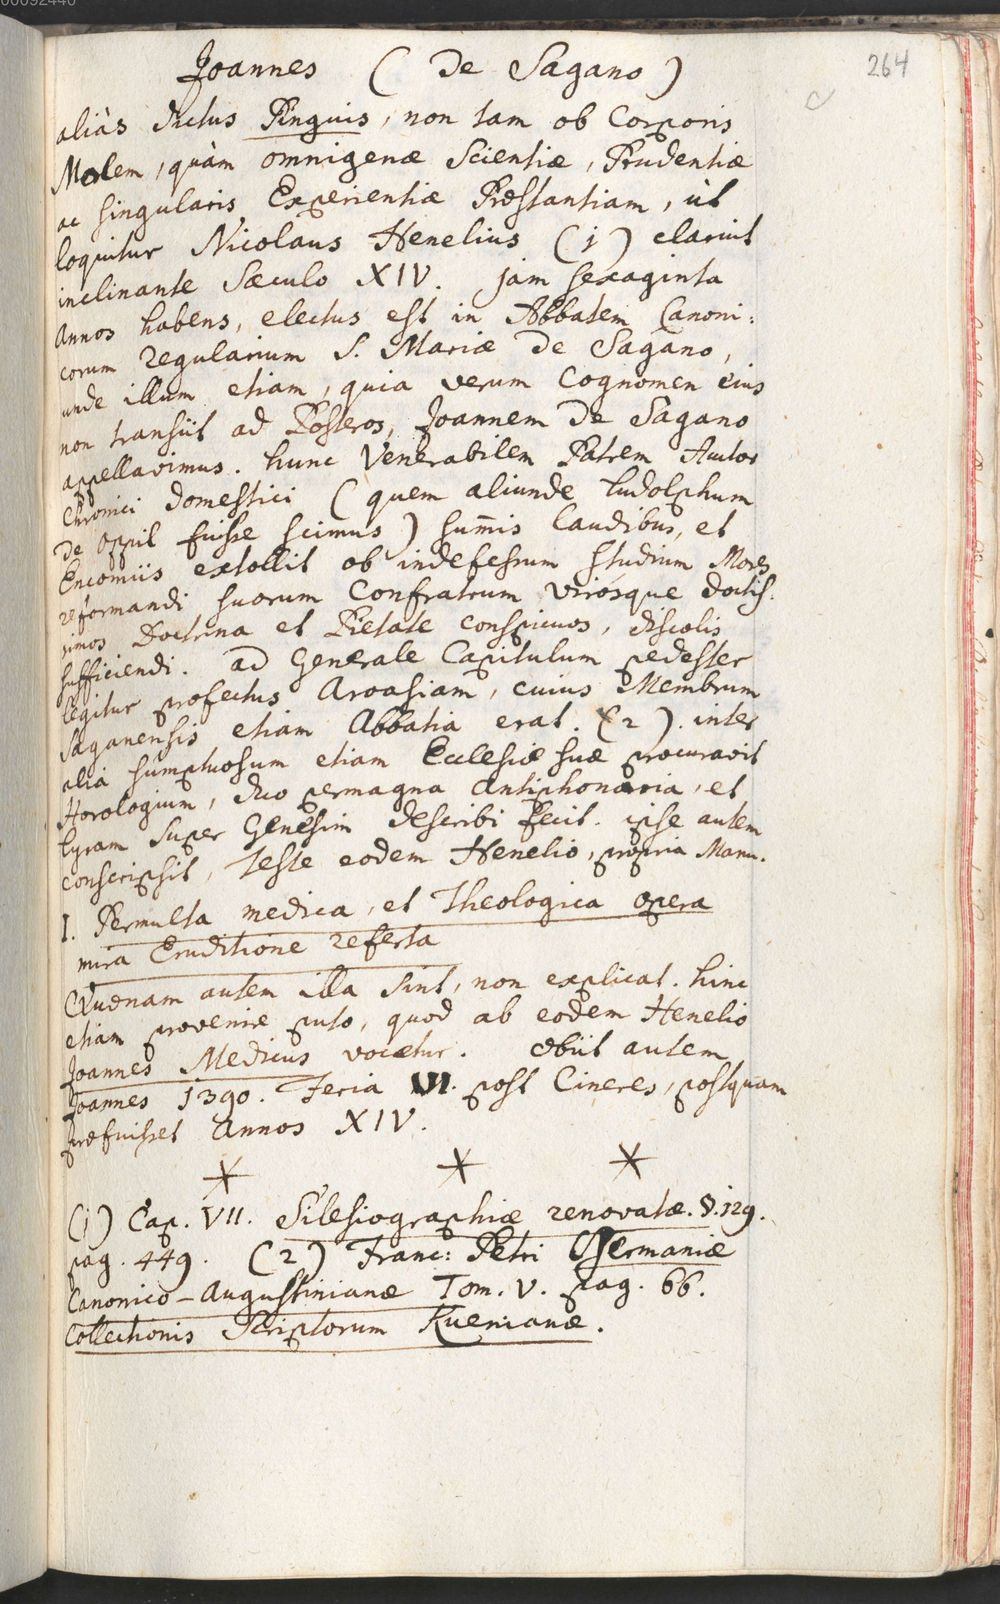 00092440
264
Joannes (De Sagano)
aliàs dictus Pinguis, non tam ob Corporis
Molem, quàm omnigenæ Scientiæ, Prudentiæ
ac singularis Experientiæ Præstantiam, ut
loquitur Nicolaus Henelius (1) claruit
inclinante Sæculo XIV. jam sexaginta
Annos habens, electus est in Abbatem Canoni:
corum regularium S. Mariæ De Sagano,
unde illum etiam, quia verum Cognomen eius
non transiit ad Posteros, Joannem De Sagano
appellavimus. hunc Venerabilem Patrem Autor
Chronici domestici (quem aliunde Ludolphum
De Oppil fuisse scimus) sum̄is Laudibus, et
Encomiis extollit ob indefessum studium Mores
reformandi suorum Confratrum virósque doctis:
simos Doctrina et Pietate conspicuos, discolis
sufficiendi. ad Generale Capitulum pedester
legitur profectus Aroasiam, cuius Membrum
Saganensis etiam Abbatia erat. (2). inter
alia sumptuosum etiam Ecclesiæ suæ procuravit
Horologium, duo permagna antiphonaria, et
Lyram super Genesim describi fecit. ipse autem
conscripsit, teste eodem Henelio, propria Manu.
I. Permulta medica, et Theologica opera
mira Eruditione referta
Quænam autem illa sint, non explicat. hinc
etiam provenire puto, quod ab eodem Henelio
Joannes Medicus vocetur. obiit autem
Joannes 1390. Feria VI. post Cineres, postquam
præfuisset annos XIV.
(1) Cap. VII. Silesiographiæ renovatæ. §. 129.
pag. 449. (2) Franc: Petri Germaniæ
Canonico-Augustinianæ Tom. V. pag. 66.
Collectionis Scriptorum Kuenianæ.